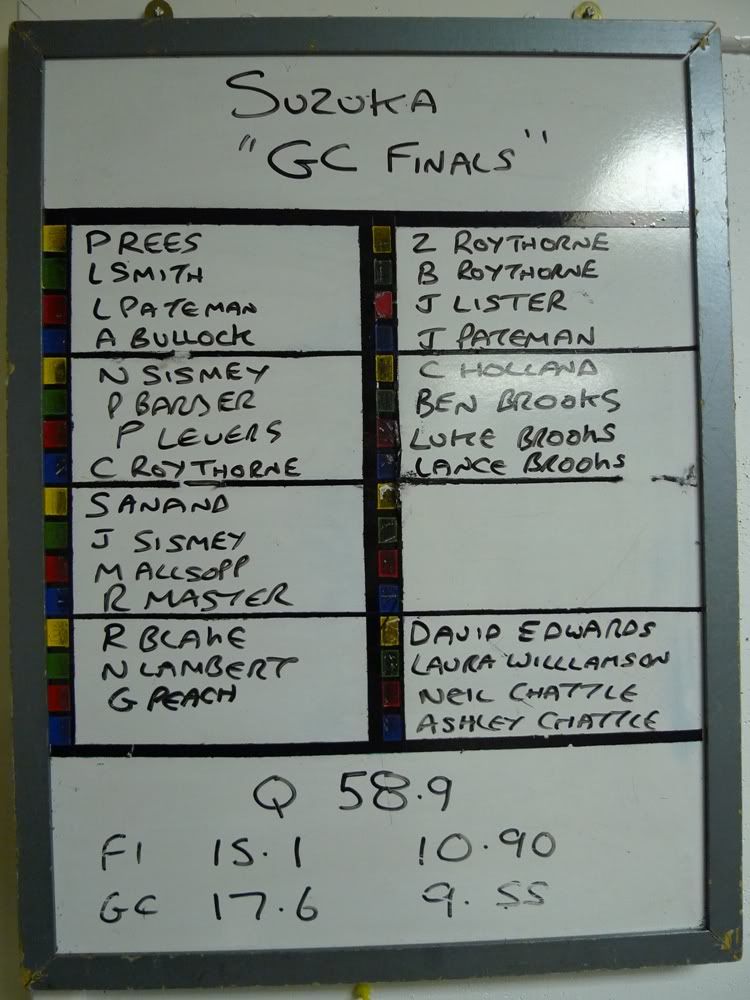 SUZUKA
"GC FINALS"
P REES
L SMITH
L PATEMAN
A BULLOCK
N SISMEY
P BARBER
P LEVERS
C ROYTHORNE
S ANAND
J SISMEY
M ALLSOPP
R MASTER
R BLAKE
N LAMBERT
G PEACH
Z ROYTHORNE
B ROYTHORNE
J LISTER
J PATEMAN
C HOLLAND
BEN BROOKS
LUKE BROOKS
LANCE BROOKS
DAVID EDWARDS
LAURA WILLLAMSON
NEIL CHATTLE
ASHLEY CHATTLE
Q 58.9
F1 15.1 10.90
GC 17.6 9.55